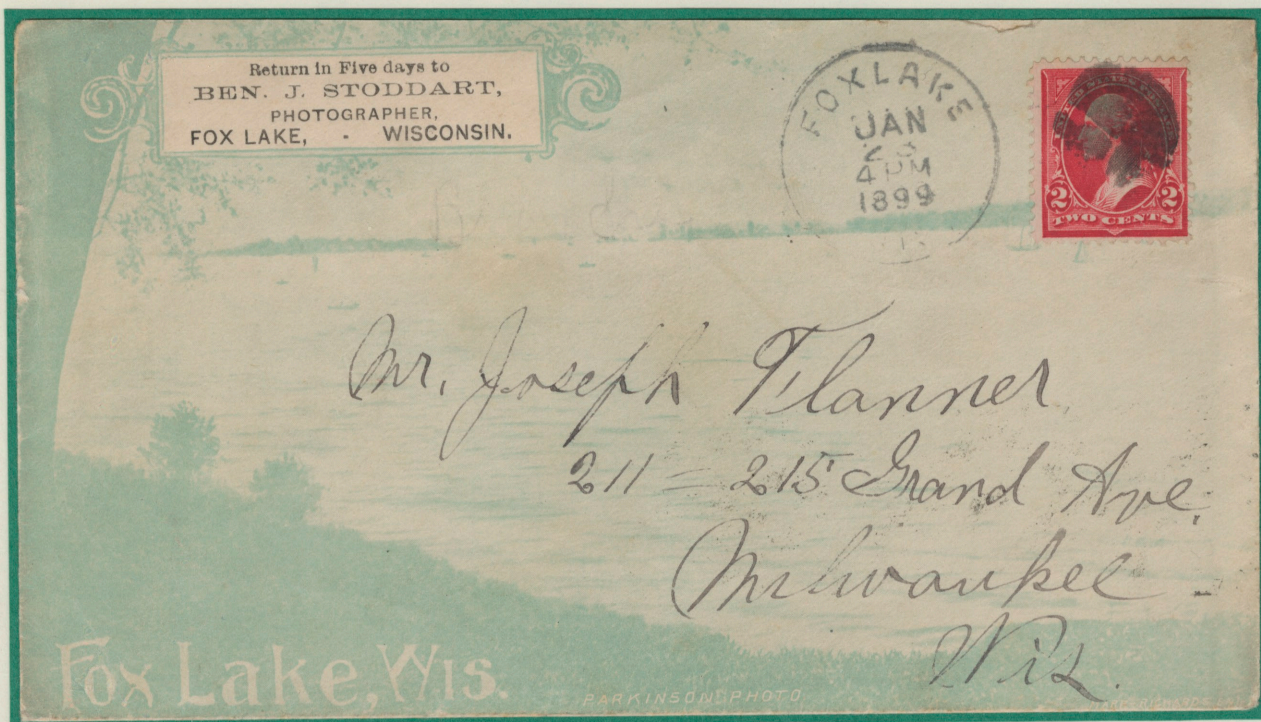 Return in Five days to
BEN. J. STODDART,
PHOTOGRAPHER,
FOX LAKE, - WISCONSIN.
FOX LAKE
JAN
4 PM
1899
2 2
TWO CENTS
Mr. Joseph Flanner
211 = 215 Grand Ave.
Milwaukee
Wis.
Fox Lake, Wis.
PARKINSON PHOTO